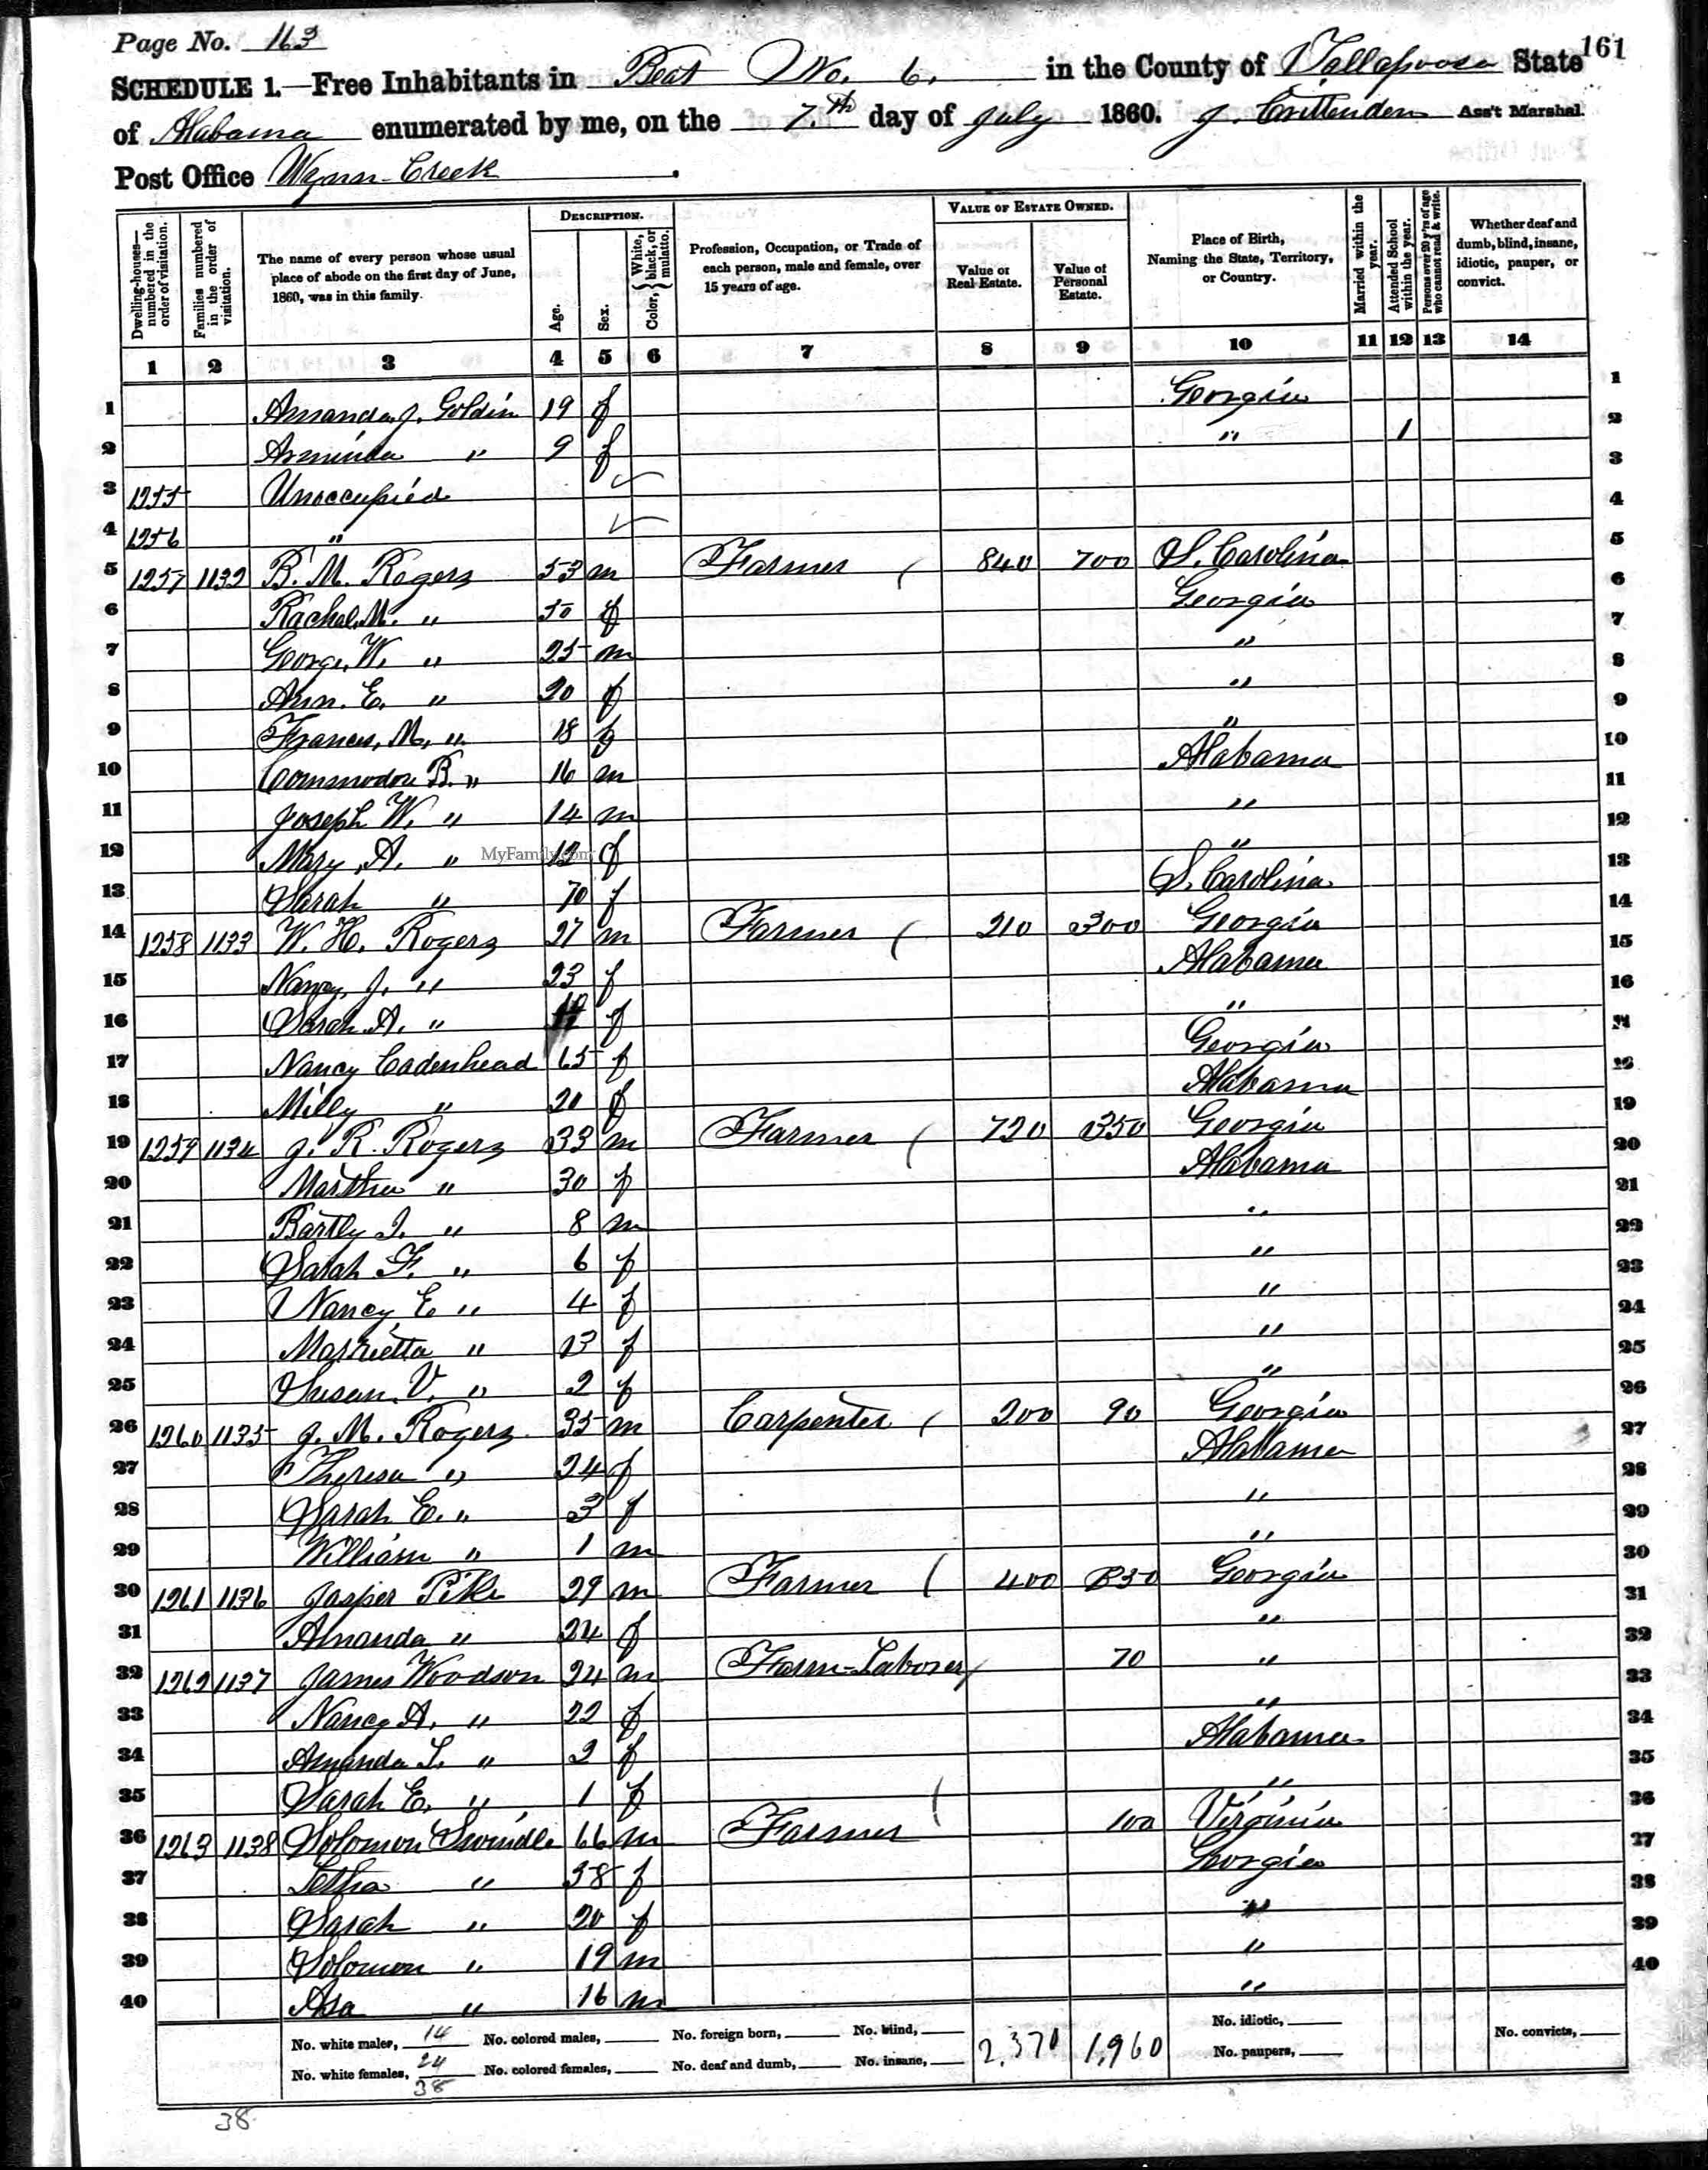 Page No. 163
161
SCHEDULE 1.—Free Inhabitants in Beat No. 6. in the County of Tallapoosa State
of Alabama enumerated by me, on the 7th day of July 1860. J. Crittenden Ass't Marshal.
Post Office Wynn Creek.
Dwelling-houses—numbered in the order of visitation.
Families numbered in the order of visitation.
The name of every person whose usual place of abode on the first day of June, 1860, was in this family.
DESCRIPTION.
Age.
Sex.
Color, { White, black, or mulatto.
Profession, Occupation, or Trade of each person, male and female, over 15 years of age.
VALUE OF ESTATE OWNED.
Value of Real Estate.
Value of Personal Estate.
Place of Birth, Naming the State, Territory, or Country.
Married within the year.
Attended School within the year.
Persons over 20 y'rs of age who cannot read & write.
Whether deaf and dumb, blind, insane, idiotic, pauper, or convict.
1 2 3 4 5 6 7 8 9 10 11 12 13 14
1 Amanda J. Goldin 19 f Georgia 1
2 Arminda " 9 f " 1 2
3 1255 Unoccupied 3
4 1256 " 4
5 1257 1132 B. M. Rogers 53 m Farmer 840 700 S. Carolina 5
6 Rachel M. " 50 f Georgia 6
7 George W. " 25 m " 7
8 Ann. E. " 20 f " 8
9 Frances, M, " 18 f " 9
10 Commodore B. " 16 m Alabama 10
11 Joseph W. " 14 m " 11
12 Mary, A. " 12 f " 12
MyFamily.com
13 Sarah " 70 f S. Carolina 13
14 1258 1133 W. H. Rogers 27 m Farmer 210 300 Georgia 14
15 Nancy, J. " 23 f Alabama 15
16 Sarah A. " f " 16
17 Nancy Cadenhead 65 f Georgia 17
18 Milly " 20 f Alabama 18
19 1259 1134 J. R. Rogers 33 m Farmer 720 350 Georgia 19
20 Martha " 30 f Alabama 20
21 Bartly J. " 8 m " 21
22 Sarah F. " 6 f " 22
23 Nancy E " 4 f " 23
24 Marrietta " 13 f " 24
25 Susan. V. " 2 f " 25
26 1260 1135 J. M. Rogers 35 m Carpenter 200 90 Georgia 26
27 Theresa " 24 f Alabama 27
28 Sarah E. " 3 f " 28
29 William " 1 m " 29
30 1261 1136 Jasper Pike 29 m Farmer 400 350 Georgia 30
31 Amanda " 24 f " 31
32 1262 1137 James Woodson 24 m Farm-Laborer 70 " 32
33 Nancy A. " 22 f " 33
34 Amanda L. " 2 f Alabama 34
35 Sarah E. " 1 f " 35
36 1263 1138 Solomon Swindle 66 m Farmer 100 Virginia 36
37 Letha " 38 f Georgia 37
38 Sarah " 20 f " 38
39 Solomon " 19 m " 39
40 Asa " 16 m " 40
No. white males, 14 No. colored males, No. foreign born, No. blind, 2,370 1,960 No. idiotic, No. convicts,
No. white females, 24 No. colored females, No. deaf and dumb, No. insane, No. paupers,
38
38